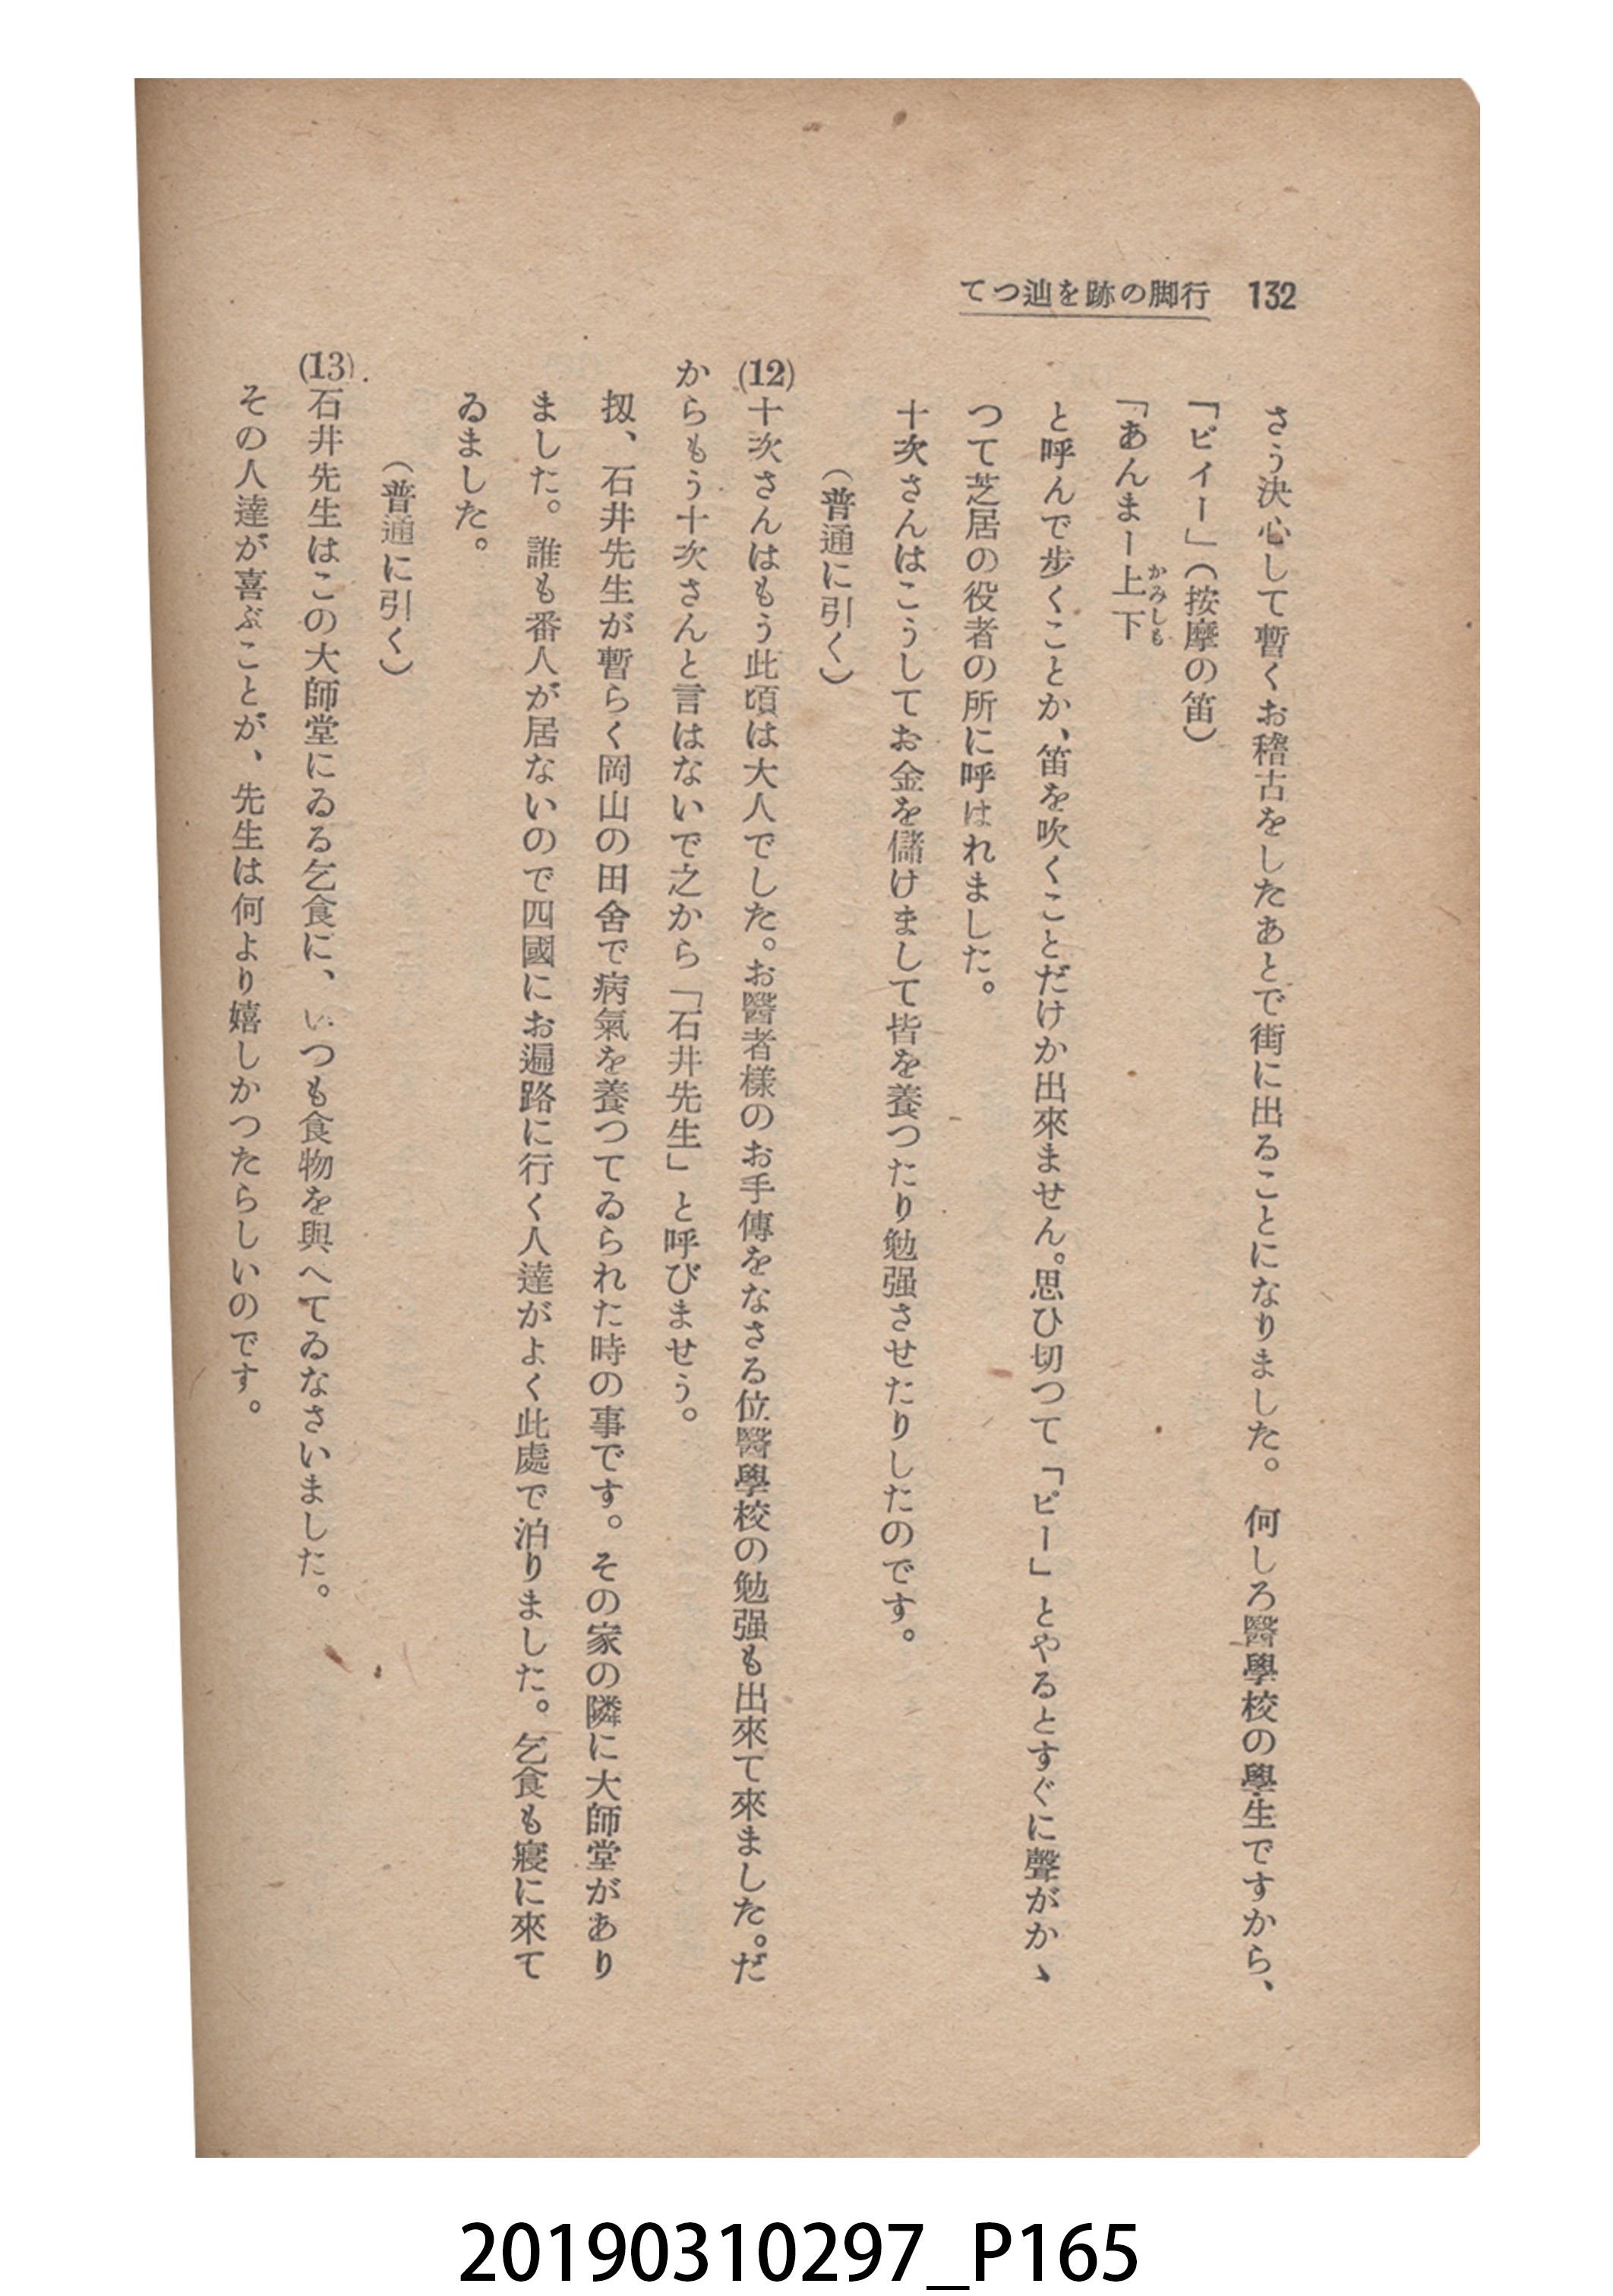 132
てつ辿を跡の脚行
さう決心して暫くお稽古をしたあとで街に出ることになりました。何しろ醫學校の學生ですから、
「ピイー」（按摩の笛）
「あんまー上下
かみしも
と呼んで歩くことか、笛を吹くことだけか出來ません。思ひ切つて「ピー」とやるとすぐに聲がかゝ
つて芝居の役者の所に呼はれました。
十次さんはこうしてお金を儲けまして皆を養つたり勉强させたりしたのです。
（普通に引く）
(12)十次さんはもう此頃は大人でした。お醫者樣のお手傳をなさる位醫學校の勉强も出來て來ました。だ
からもう十次さんと言はないで之から「石井先生」と呼びませう。
扨、石井先生が暫らく岡山の田舍で病氣を養つてゐられた時の事です。その家の隣に大師堂があり
ました。誰も番人が居ないので四國にお遍路に行く人達がよく此處で泊りました。乞食も寢に來て
ゐました。
（普通に引く）
(13)石井先生はこの大師堂にゐる乞食に、いつも食物を與へてゐなさいました。
その人達が喜ぶことが、先生は何より嬉しかつたらしいのです。
20190310297_P165